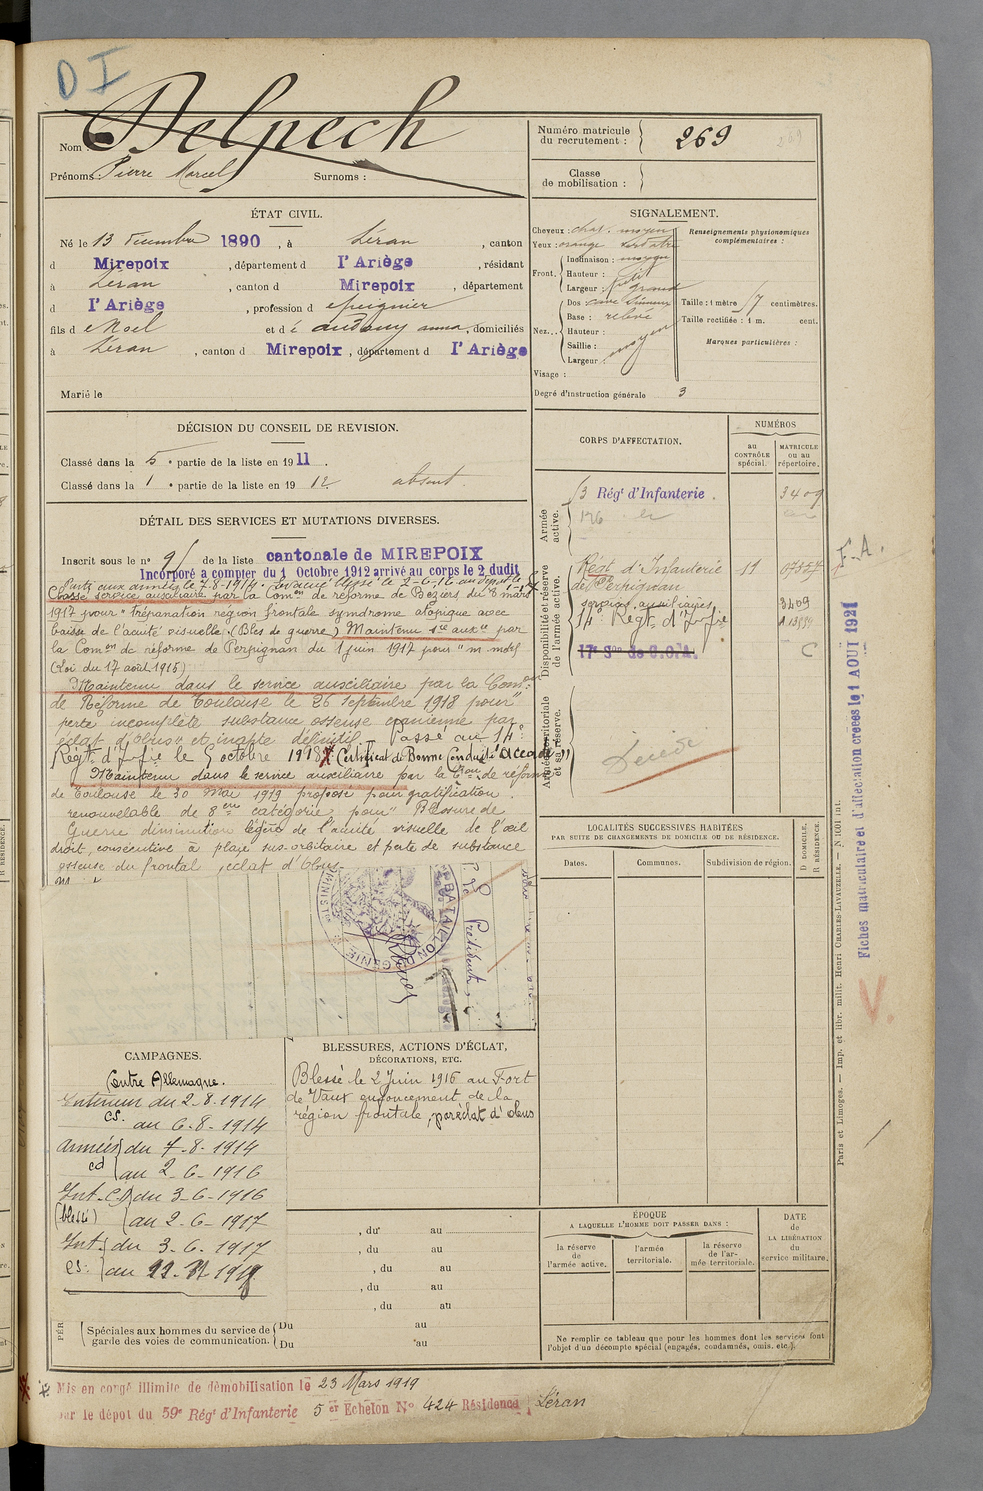 D I
Nom : Delpech
Prénoms : Pierre Marcel Surnoms :
Numéro matricule
du recrutement :
269
Classe
de mobilisation :
ÉTAT CIVIL.
Né le 13 Décembre 1890, à Léran, canton
d Mirepoix, département d l'Ariège, résidant
à Léran, canton d Mirepoix, département
d l'Ariège, profession d
fils d e Noel et d anna, domiciliés
à Léran, canton d Mirepoix, département d l'Ariège
Marié le
SIGNALEMENT.
Cheveux : chat. moyen
Yeux : orange verdâtre
Front. Inclinaison : moyen
Hauteur : petit
Largeur : grand
Nez... Dos : cave sinueux
Base : relevé
Hauteur :
Saillie : moyen
Largeur :
Visage :
Renseignements physionomiques
complémentaires :
Taille : 1 mètre 7 centimètres.
Taille rectifiée : 1 m. cent.
Marques particulières :
Degré d'instruction générale 3
DÉCISION DU CONSEIL DE REVISION.
Classé dans la 5e partie de la liste en 1911.
Classé dans la 1e partie de la liste en 1912. absent.
DÉTAIL DES SERVICES ET MUTATIONS DIVERSES.
Inscrit sous le no 91 de la liste cantonale de MIREPOIX
Incorporé a compter du 1 Octobre 1912 arrivé au corps le 2 dudit
Parti aux armées le 7-8-1914. Evacué blessé le 2-6-16 au dépôt le
Classé service auxiliaire par la Comon de réforme de Béziers du 8 mars
1917 pour "trépanation région frontale syndrome atopique avec
baisse de l'acuité visuelle. (Bles de guerre) Maintenu sce auxre par
la Comon de réforme de Perpignan du 1 juin 1917 pour "m. mtf
(Loi du 17 août 1915)
Maintenu dans le service auxiliaire par la Comon
de Réforme de Toulouse le 26 Septembre 1918 pour "
perte incomplète substance osseuse cranienne par
éclat d'obus" et inapte définitif. Passé au 14e
Regt. d'Infie le 5 octobre 1918. Certificat de Bonne Conduite "Accordé"
Maintenu dans le service auxiliaire par la Con de réforme
de Toulouse le 30 Mai 1919 proposé pour gratification
renouvelable de 8eme catégorie pour "Blessure de
Guerre diminution légère de l'acuité visuelle de l'œil
droit, consécutive à plaie sus-orbitaire et perte de substance
osseuse du frontal, éclat d'Obus
BATAILLON DU GENIE
MINIST
P. Le Président,
CORPS D'AFFECTATION.
NUMÉROS
au
CONTRÔLE
spécial.
MATRICULE
ou au
répertoire.
Armée
active.
Régt d'Infanterie. 3409
Disponibilité et réserve
de l'armée active.
Régt d'Infanterie 11 07357
de Perpignan
services auxiliaires 3409
14e Regt. d'Infie
17e Son de C.O.A. C
Armée territoriale
et sa réserve.
Décédé
LOCALITÉS SUCCESSIVES HABITÉES
PAR SUITE DE CHANGEMENTS DE DOMICILE OU DE RÉSIDENCE.
Dates. Communes. Subdivision de région.
D DOMICILE.
R RÉSIDENCE.
F.A.
Fiches matriculaire et d'affectation créées le 1 AOUT 1921
V.
Paris et Limoges. — Imp. et libr. milit. Henri CHARLES-LAVAUZELLE. — N 1001 int.
CAMPAGNES.
Contre Allemagne.
Intérieur du 2-8-1914
CS. au 6-8-1914
Armées du 7-8-1914
cd au 2-6-1916
Int. CD du 3-6-1916
(blessé) au 2-6-1917
Int. du 3-6-1917
CS. au 1919
BLESSURES, ACTIONS D'ÉCLAT,
DÉCORATIONS, ETC.
Blessé le 2 Juin 1916 au Fort
de Vaux enfoncement de la
région frontale, par éclat d'obus
, du au
, du au
, du au
, du au
, du au
Spéciales aux hommes du service de
garde des voies de communication.
Du au
Du au
ÉPOQUE
A LAQUELLE L'HOMME DOIT PASSER DANS :
la réserve
de
l'armée active.
l'armée
territoriale.
la réserve
de l'ar-
mée territoriale.
DATE
de
LA LIBÉRATION
du
service militaire.
Ne remplir ce tableau que pour les hommes dont les services font
l'objet d'un décompte spécial (engagés, condamnés, omis, etc.).
Mis en congé illimité de démobilisation le 23 Mars 1919
par le dépot du 59e Régt d'Infanterie 5e Echelon No 424 Résidence Léran